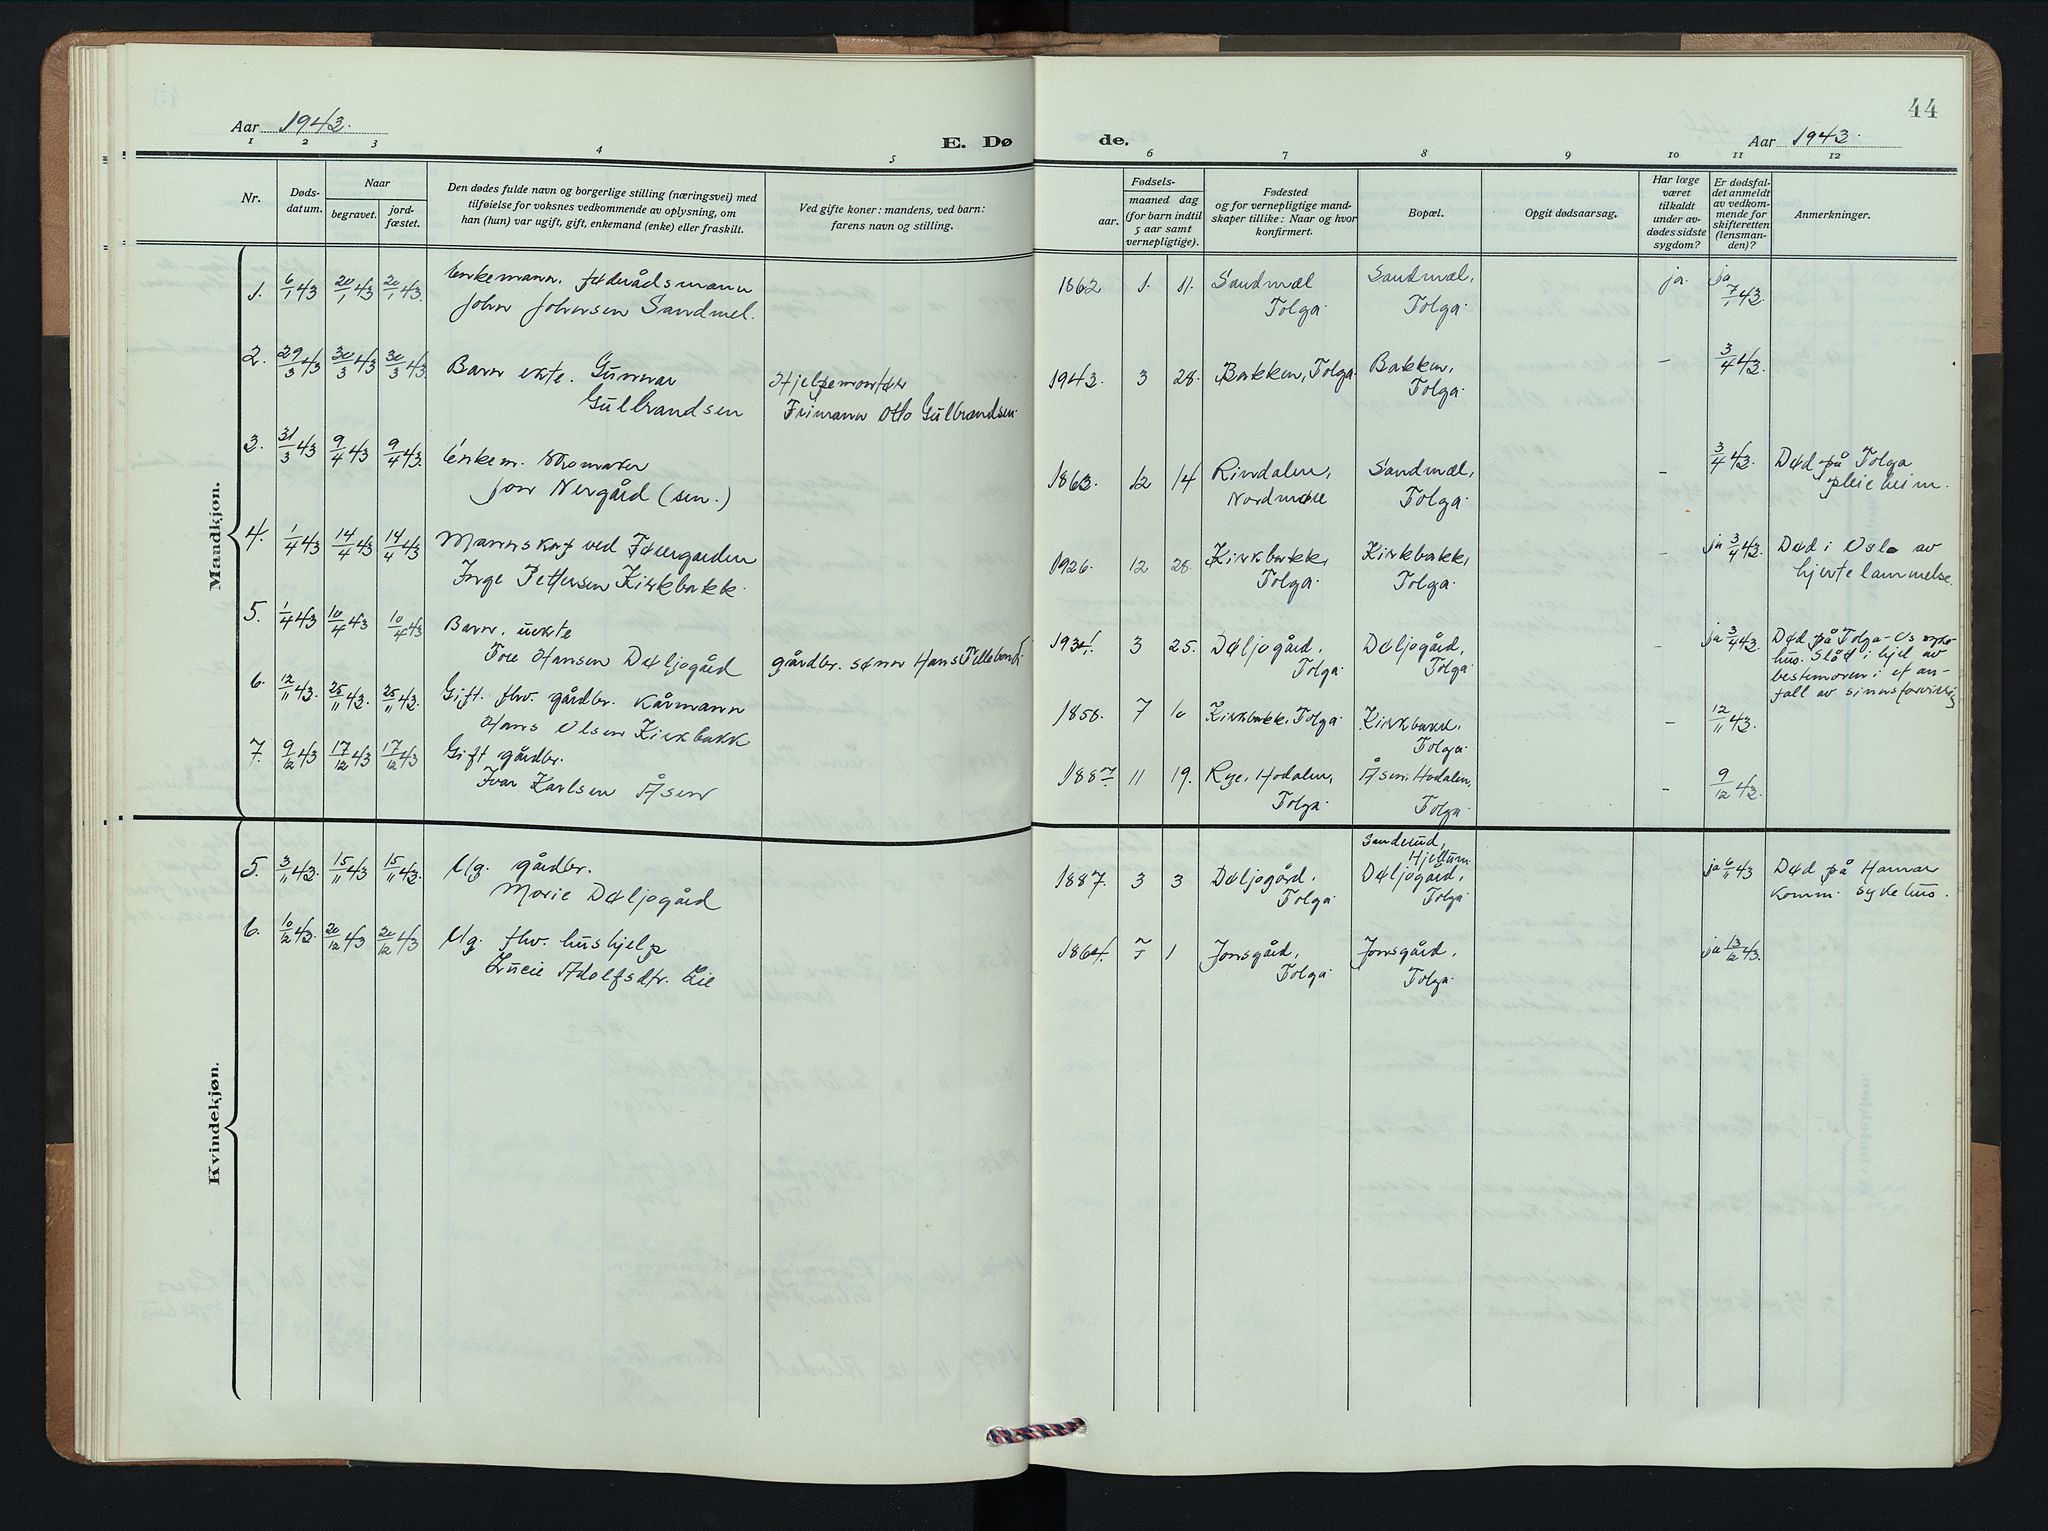 44
Aar 1943.
E. Dø
de.
Aar 1943.
1 2 3 4 5 6 7 8 9 10 11 12
Nr.
Døds-
datum.
Naar
begravet.
jord-
fæstet.
Den dødes fulde navn og borgerlige stilling (næringsvei) med
tilføielse for voksnes vedkommende av oplysning, om
han (hun) var ugift, gift, enkemand (enke) eller fraskilt.
Ved gifte koner: mandens, ved barn:
farens navn og stilling.
Fødsels-
aar.
maaned dag
(for barn indtil
5 aar samt
vernepligtige).
Fødested
og for vernepligtige mand-
skaper tillike: Naar og hvor
konfirmert.
Bopæl.
Opgit dødsaarsag.
Har læge
været
tilkaldt
under av-
dødes sidste
sygdom?
Er dødsfal-
det anmeldt
av vedkom-
mende for
skifteretten
(lensman-
den)?
Anmerkninger.
Mandkjøn.
1. 6/1 43 20/1 43 20/1 43. Enkemann. føderådsmann
John Johnsen Sandmel.
1862 1. 11. Sandmæl
Tolga.
Sandmæl,
Tolga.
ja. ja
7/1 43.
2. 29/3 43 30/3 43 30/3 43. Barn ekte. Gunnar
Gulbrandsen
Hjelpemontør
Frimann Otto Gulbrandsen.
1943. 3 28. Bakken, Tolga.
Bakken,
Tolga.
- 3/4 43.
3. 31/3 43 9/4 43 9/4 43. Enkem. skomaker
Jon Nergård (sen.)
1863. 12 14 Rindalen,
Nordmøre
Sandmæl,
Tolga.
- 3/4 43. Død på Tolga
pleieheim.
4. 1/4 43 14/4 43 14/4 43. Mannskap ved
Inge Pettersen Kirkbakk.
1926. 12 28. Kirkbakk,
Tolga.
Kirkbakk,
Tolga.
- ja 3/4 43. Død i Oslo av
hjertelammelse.
5. 1/4 43 10/4 43 10/4 43 Barn. uekte
Tore Hansen Døljogård
gårdbr. sønn Hans
3 25. Døljogård,
Tolga.
Døljogård,
Tolga.
- ja 3/4 43. Død på Tolga-Os syke-
hus. Slått i hjel av
bestemoren i et an-
fall av sinnsforvirring
6. 12/11 43. 25/11 43. 25/11 43. Gift. fhv. gårdbr. kårmann
Hans Olsen Kirkbakk
1858. 7 10 Kirkbakk, Tolga.
Kirkbakk,
Tolga.
- 12/11 43.
7. 9/12 43 17/12 43 17/12 43 Gift gårdbr.
Ivar Karlsen Åsen
1887 11 19. Rye, Hodalen,
Tolga.
Åsen, Hodalen,
Tolga.
- 9/12 43.
Kvindekjøn.
5. 3/11 43. 15/11 43 15/11 43. Ug. gårdbr.
Marie Døljogård
1887. 3 3 Døljogård,
Tolga.
Sanderud,
Hjellum.
Døljogård,
Tolga.
ja 6/11 43 Død på Hamar
komm. sykehus.
6. 10/12 43. 20/12 43 20/12 43 Ug. fhv. hushjelp
Lucie Adolfsdtr. Lie
1864. 7 1 Jonsgård,
Tolga.
Jonsgård,
Tolga.
ja 13/12 43.